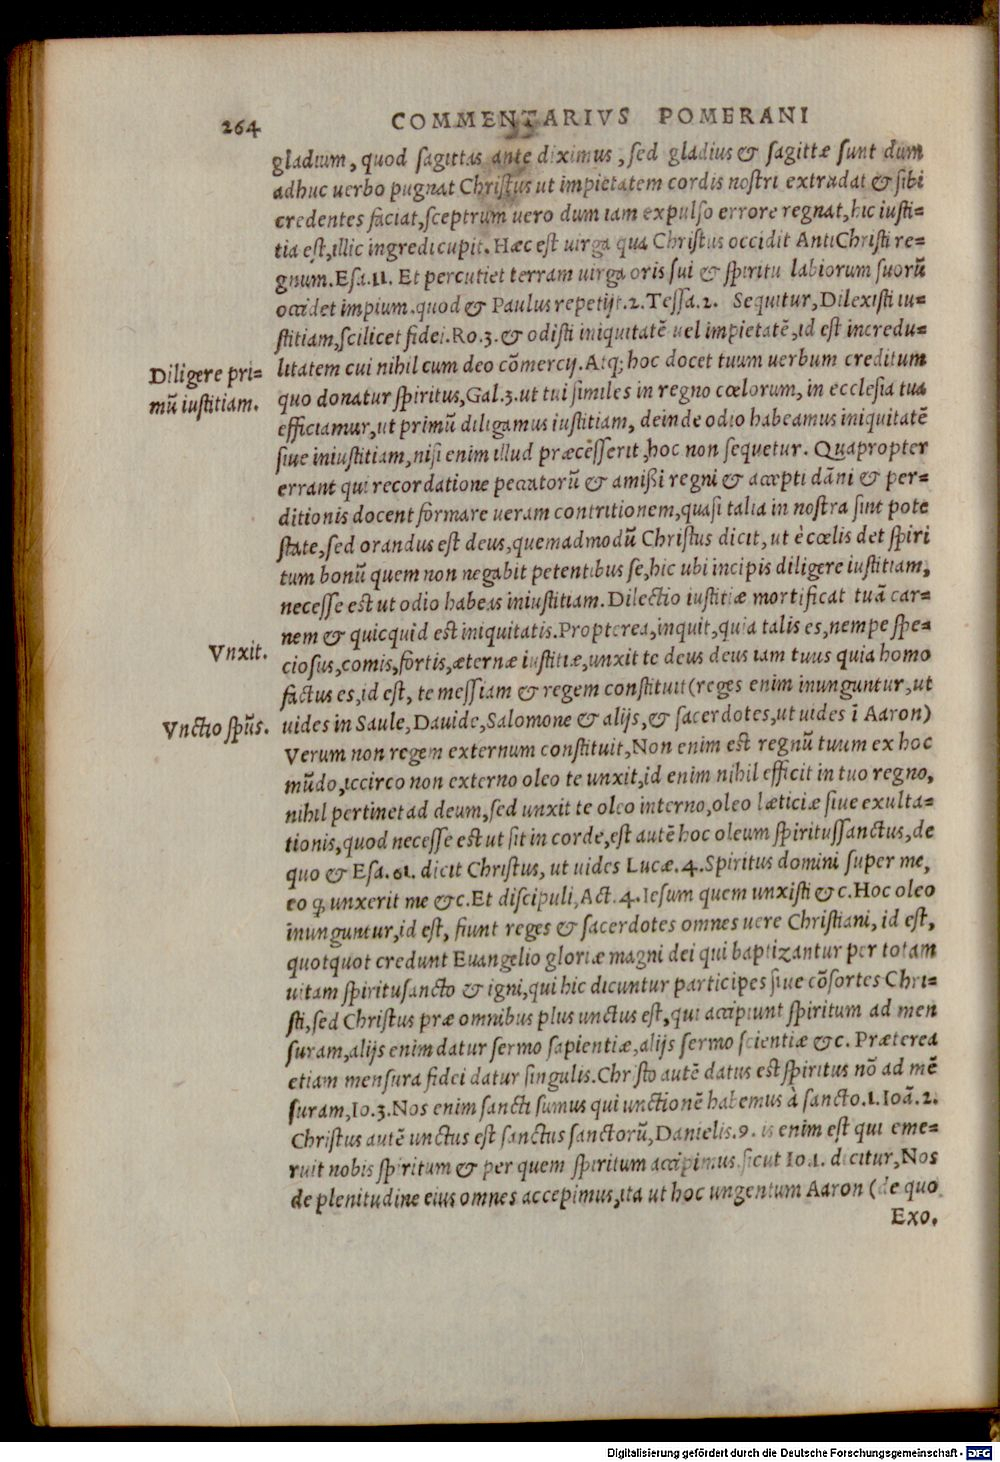 264
COMMENTARIVS POMERANI
gladium, quod sagittas ante diximus, sed gladius & sagittæ sunt dum
adhuc uerbo pugnat Christus ut impietatem cordis nostri extrudat & sibi
credentes faciat, sceptrum uero dum iam expulso errore regnat, hic iusti=
tia est, illic ingredi cupit. Hæc est uirga qua Christus occidit AntiChristi re=
gnum. Esa. 11. Et percutiet terram uirga oris sui & spiritu labiorum suorũ
occidet impium. quod & Paulus repetijt. 2. Tessa. 2. Sequitur, Dilexisti iu=
stitiam, scilicet fidei. Ro. 3. & odisti iniquitatẽ uel impietatẽ, id est incredu=
Diligere pri=
mũ iustitiam.
litatem cui nihil cum deo cõmercij. Atq; hoc docet tuum uerbum creditum
quo donatur spiritus, Gal. 3. ut tui similes in regno cœlorum, in ecclesia tua
efficiamur, ut primũ diligamus iustitiam, deinde odio habeamus iniquitatẽ
siue iniustitiam, nisi enim illud præcesserit, hoc non sequetur. Quapropter
errant qui recordatione peccatorũ & amißi regni & accepti dãni & per=
ditionis docent formare ueram contritionem, quasi talia in nostra sint pote
state, sed orandus est deus, quemadmodũ Christus dicit, ut è cœlis det spiri
tum bonũ quem non negabit petentibus se, hic ubi incipis diligere iustitiam,
necesse est ut odio habeas iniustitiam. Dilectio iustitiæ mortificat tuã car=
nem & quicquid est iniquitatis. Propterea, inquit, quia talis es, nempe spe=
Vnxit.
ciosus, comis, fortis, æternæ iustitiæ, unxit te deus deus iam tuus quia homo
factus es, id est, te messiam & regem constituit (reges enim inunguntur, ut
Vnctio spũs.
uides in Saule, Dauide, Salomone & alijs, & sacerdotes, ut uides ĩ Aaron)
Verum non regem externum constituit, Non enim est regnũ tuum ex hoc
mũdo, iccirco non externo oleo te unxit, id enim nihil efficit in tuo regno,
nihil pertinet ad deum, sed unxit te oleo interno, oleo læticiæ siue exulta=
tionis, quod necesse est ut sit in corde, est autẽ hoc oleum spiritussanctus, de
quo & Esa. 61. dicit Christus, ut uides Lucæ. 4. Spiritus domini super me,
eo ꝙ unxerit me &c. Et discipuli, Act. 4. Iesum quem unxisti &c. Hoc oleo
inunguntur, id est, fiunt reges & sacerdotes omnes uere Christiani, id est,
quotquot credunt Euangelio gloriæ magni dei qui baptizantur per totam
uitam spiritusancto & igni, qui hic dicuntur participes siue cõsortes Chri=
sti, sed Christus præ omnibus plus unctus est, qui accipiunt spiritum ad men
suram, alijs enim datur sermo sapientiæ, alijs sermo scientiæ &c. Præterea
etiam mensura fidei datur singulis. Christo autẽ datus est spiritus nõ ad mẽ
suram, Io. 3. Nos enim sancti sumus qui unctionẽ habemus à sancto. 1. Ioã. 2.
Christus autẽ unctus est sanctus sanctorũ, Danielis. 9. is enim est qui eme=
ruit nobis spiritum & per quem spiritum accipimus. sicut Io. 1. dicitur, Nos
de plenitudine eius omnes accepimus, ita ut hoc ungentum Aaron (de quo
Exo.
Digitalisierung gefördert durch die Deutsche Forschungsgemeinschaft - DFG